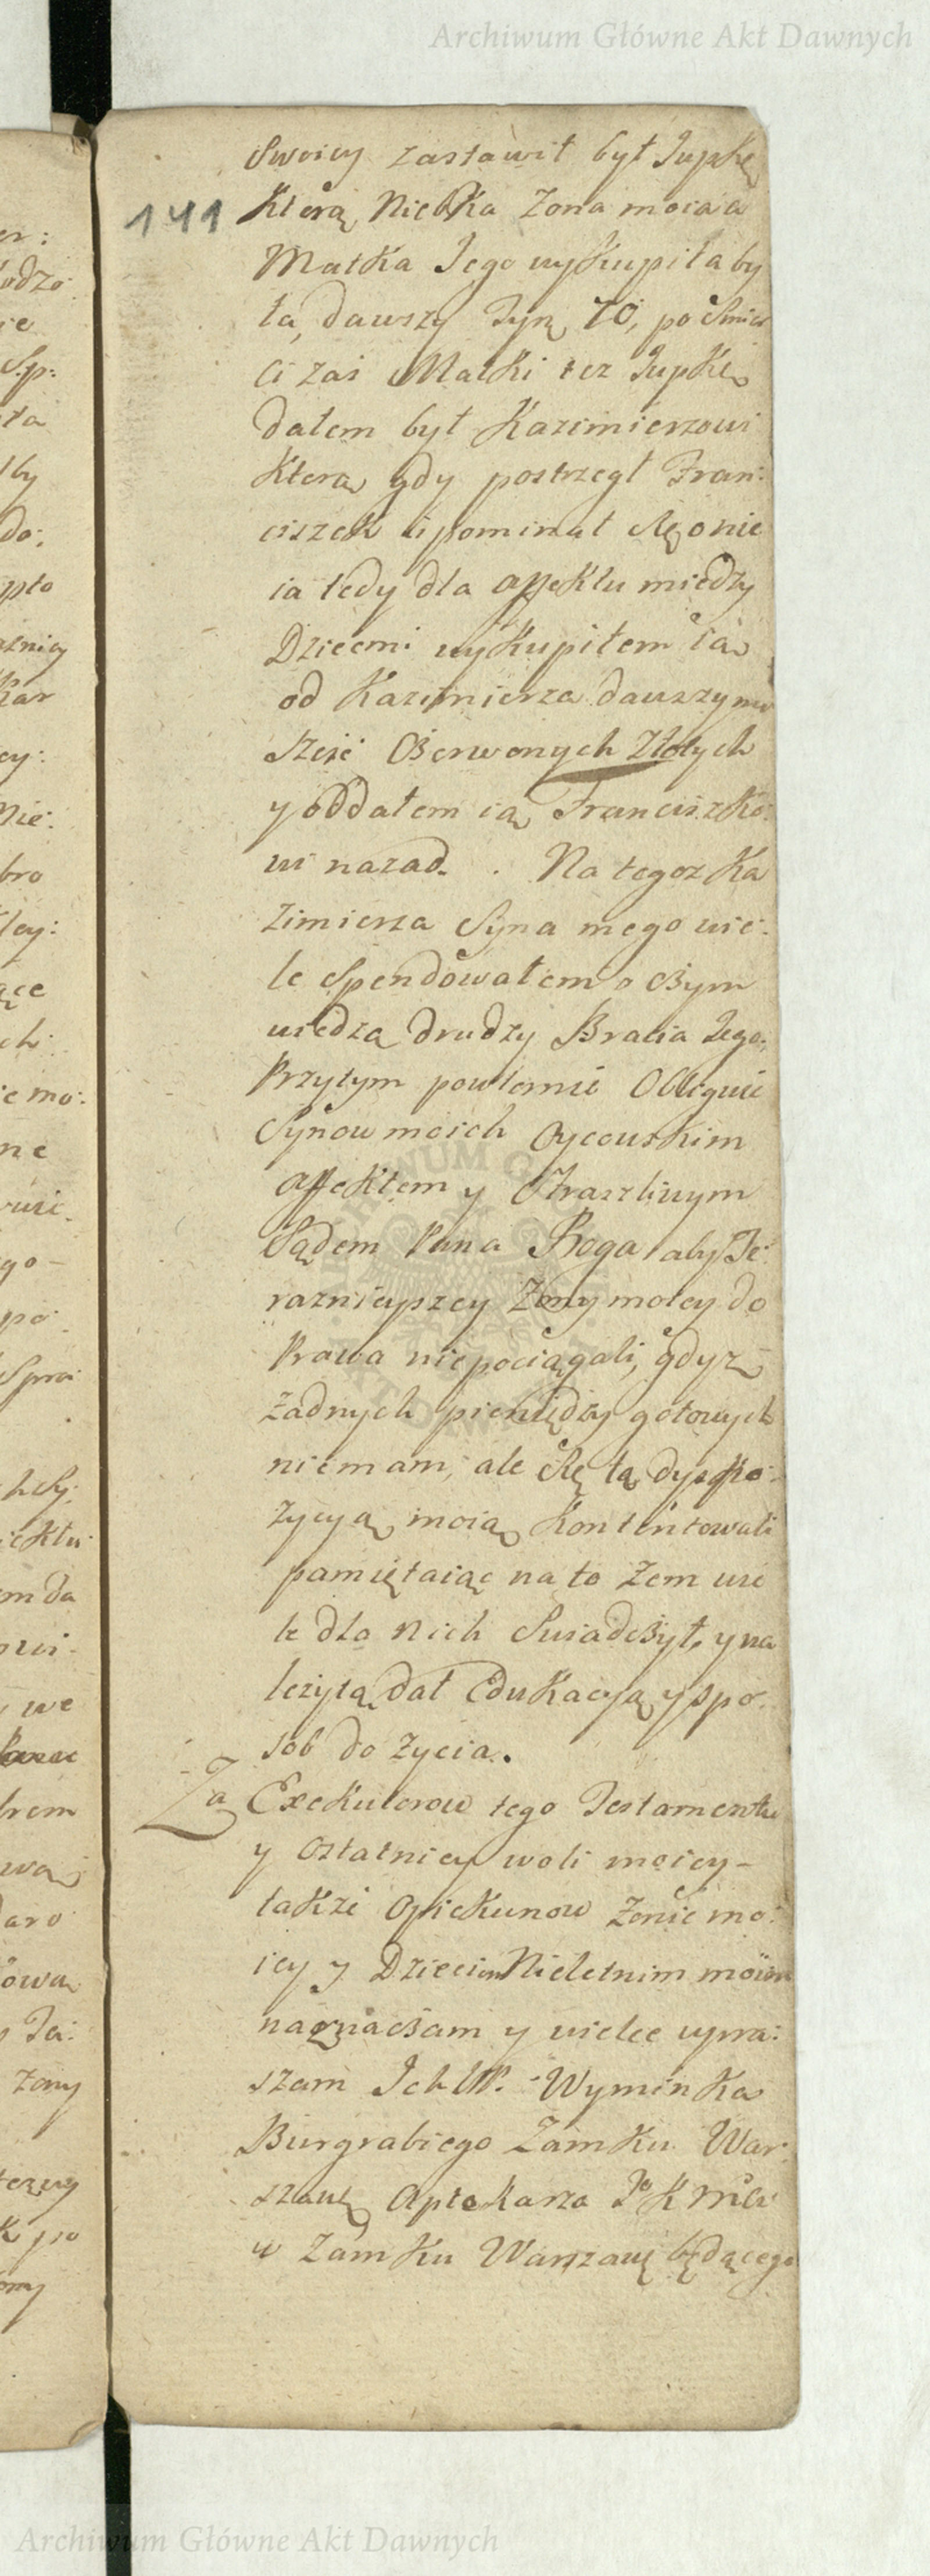 Archiwum Główne Akt Dawnych
swoiey zastawił był Jupkę
141 Którą Niebka Zona moia a
Matka Jego wykupiła by
ła, dawszy Tyn 70, po Smier
ci zas Matki tez Jupkę
dałem był Kazimierzowi
Ktorą gdy postrzegł Fran:
ciszek upominał się o nię
ia tedy dla affektu między
Dziecmi wykupiłem ią
od Kazimierza dawszy mu
Szesc Czerwonych Złotych
y oddałem ią Franciszko:
wi nazad. Na tegoz Ka
zimierza Syna mego wie:
le spendowałem o czym
wiedzą drudzy Bracia Jego,
Przytym powtornie Obliguię
Synow moich Oycowskim
affektem y Straszliwym
Sądem Pana Boga, aby Te:
raznieyszey Zony moiey do
Prawa niepociągali, gdyz
zadnych pieniędzy gotowych
niemam, ale się tą dyspo:
zycyą moią Kontentowali
pamiętaiąc na to Zem wie
le dla nich Swiadczył, y na
lezytą dał Edukacyą y spo
sob do zycia.
Za Exekutorow tego Testamentu
y Ostatniey woli moiey-
takze Opiekunow Zonie mo:
iey y Dzieciom Nieletnim moim
naznaczam y wielce upra:
szam Ich Wymınka
Burgrabiego Zamku War:
szaw: Aptekarza J K Mci
w Zamku Warszaw: będącego
er:
odzo:
ie
Sp:
ła
by
do:
Kar
ey:
Nie:
bro
ące
ch
ie mo:
ne
go-
po
m da
we
brem
aro
Ta:
zony
k po
Archiwum Główne Akt Dawnych